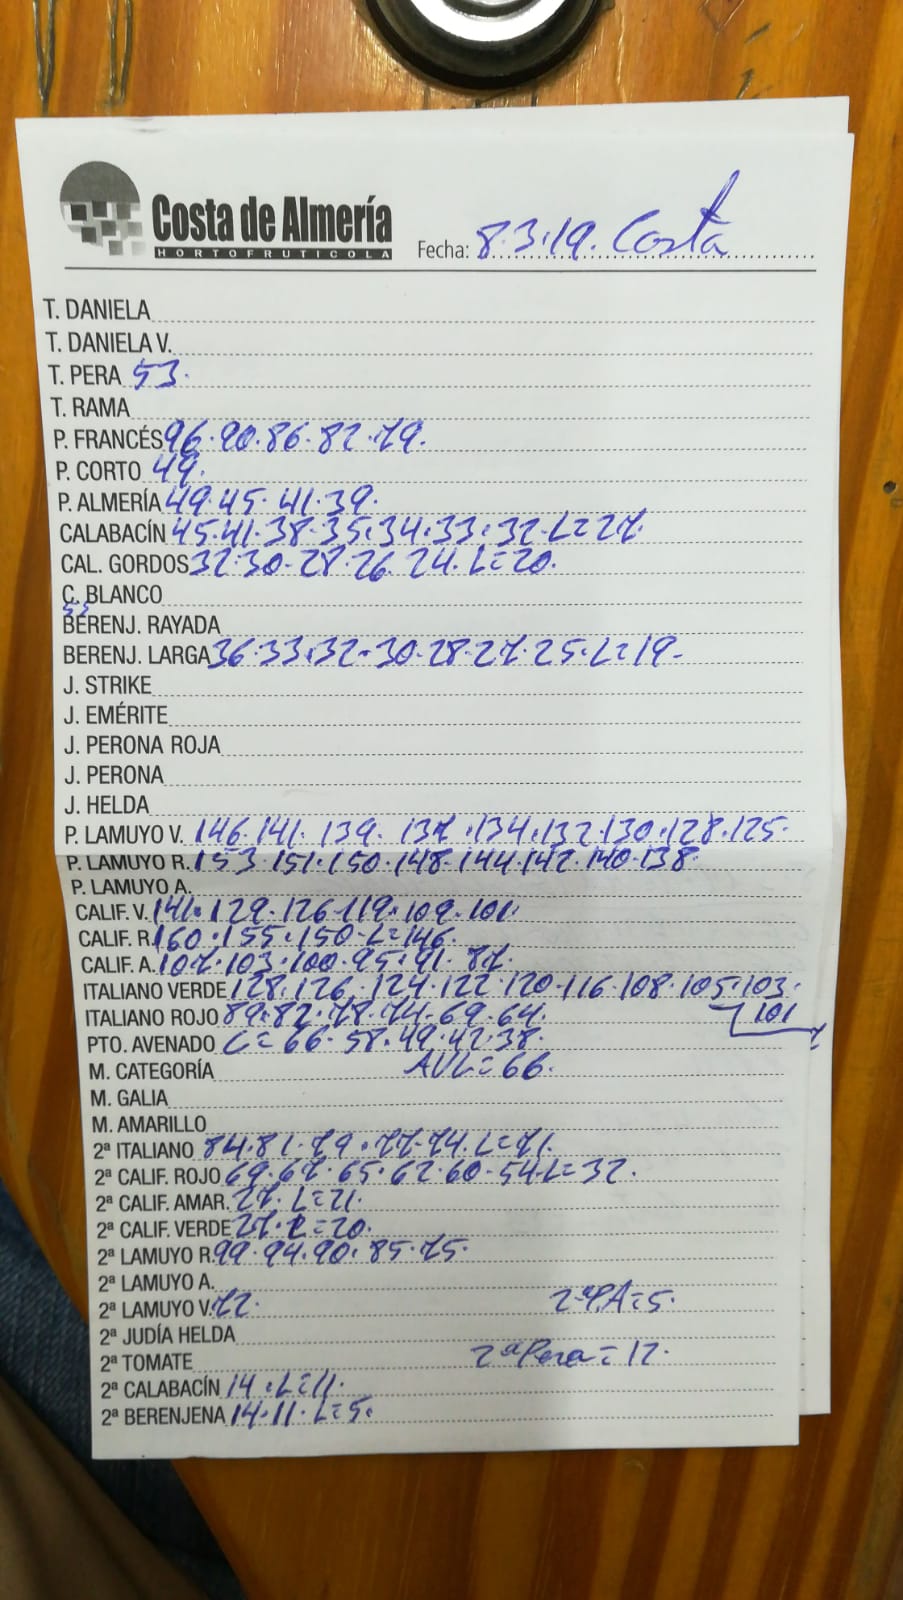 Costa de Almería
HORTOFRUTICOLA
Fecha: 8.3.19. Costa
T. DANIELA
T. DANIELA V.
T. PERA 53.
T. RAMA
P. FRANCÉS 96.90.86.82.79.
P. CORTO 49.
P. ALMERÍA 49.45.41.39.
CALABACÍN 45.41.38.35.34.33.32.L=27.
CAL. GORDOS 32.30.28.26.24.L=20.
C. BLANCO
53
BERENJ. RAYADA
BERENJ. LARGA 36.33.32.30.28.27.25.L=19-
J. STRIKE
J. EMÉRITE
J. PERONA ROJA
J. PERONA
J. HELDA
P. LAMUYO V. 146.141.139.137.134.132.130.128.125.
P. LAMUYO R. 153.151.150.148.144.142.140.138.
P. LAMUYO A.
CALIF. V. 141.129.126.119.109.101.
CALIF. R. 160.155.150-L=146.
CALIF. A. 107.103.100.95.91.87.
ITALIANO VERDE 128.126.124.122.120.116.108.105.103.
101
ITALIANO ROJO 89.82.78.74.69.64.
PTO. AVENADO L=66.58.49.42.38.
M. CATEGORÍA AVL=66.
M. GALIA
M. AMARILLO
2ª ITALIANO 84.81.79.77.74.L=71.
2ª CALIF. ROJO 69.67.65.62.60.54.L=32.
2ª CALIF. AMAR. 27.L=21.
2ª CALIF. VERDE 27.L=20.
2ª LAMUYO R. 99.94.90.85.75.
2ª LAMUYO A.
2ª LAMUYO V. 72. 2ªPA=5.
2ª JUDÍA HELDA
2ª TOMATE 2ªPera=12.
2ª CALABACÍN 14.L=11.
2ª BERENJENA 14.11.L=5.